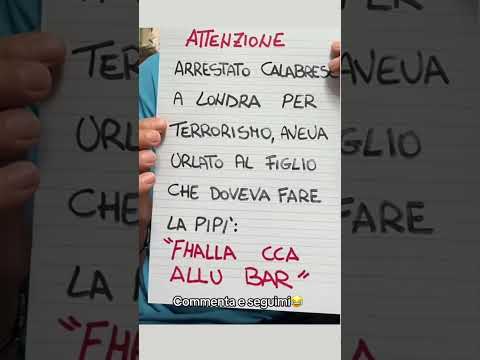 ATTENZIONE
ARRESTATO CALABRESE
A LONDRA PER
TERRORISMO, AVEVA
URLATO AL FIGLIO
CHE DOVEVA FARE
LA PIPI':
"FHALLA CCA
ALLU BAR"
Commenta e seguimi😂